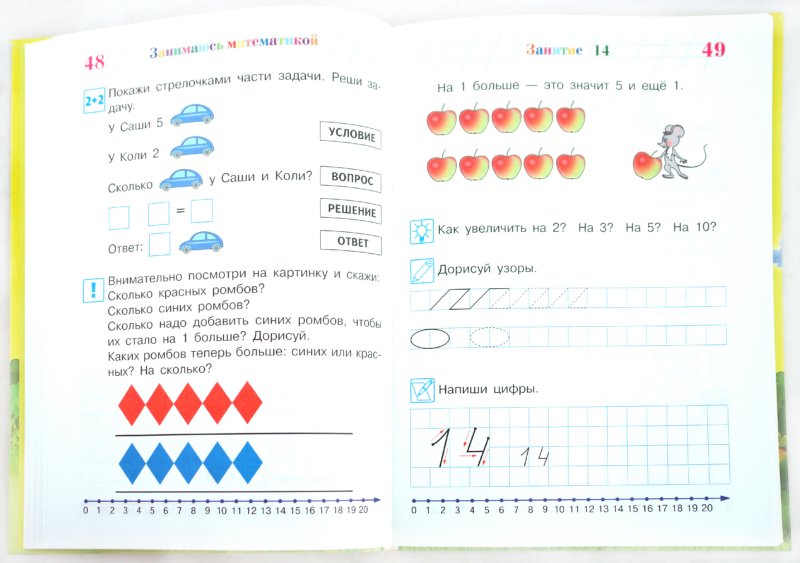 48 Занимаюсь математикой
2+2 Покажи стрелочками части задачи. Реши за-
дачу.
У Саши 5
УСЛОВИЕ
У Коли 2
Сколько у Саши и Коли?
ВОПРОС
=
РЕШЕНИЕ
Ответ:
ОТВЕТ
! Внимательно посмотри на картинку и скажи:
Сколько красных ромбов?
Сколько синих ромбов?
Сколько надо добавить синих ромбов, чтобы
их стало на 1 больше? Дорисуй.
Каких ромбов теперь больше: синих или крас-
ных? На сколько?
0 1 2 3 4 5 6 7 8 9 10 11 12 13 14 15 16 17 18 19 20
Занятие 14 49
На 1 больше — это значит 5 и ещё 1.
Как увеличить на 2? На 3? На 5? На 10?
Дорисуй узоры.
Напиши цифры.
14 14
0 1 2 3 4 5 6 7 8 9 10 11 12 13 14 15 16 17 18 19 20